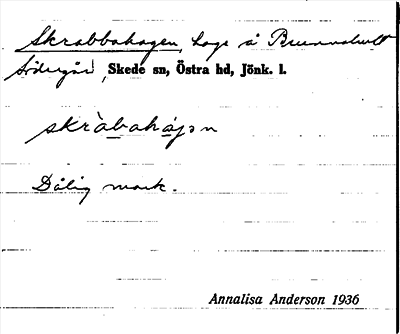 Skrabbahagen, hage å Brunnshult
Södergård, Skede sn, Östra hd, Jönk. l.
skràbahájən
Dålig mark.
Annalisa Anderson 1936